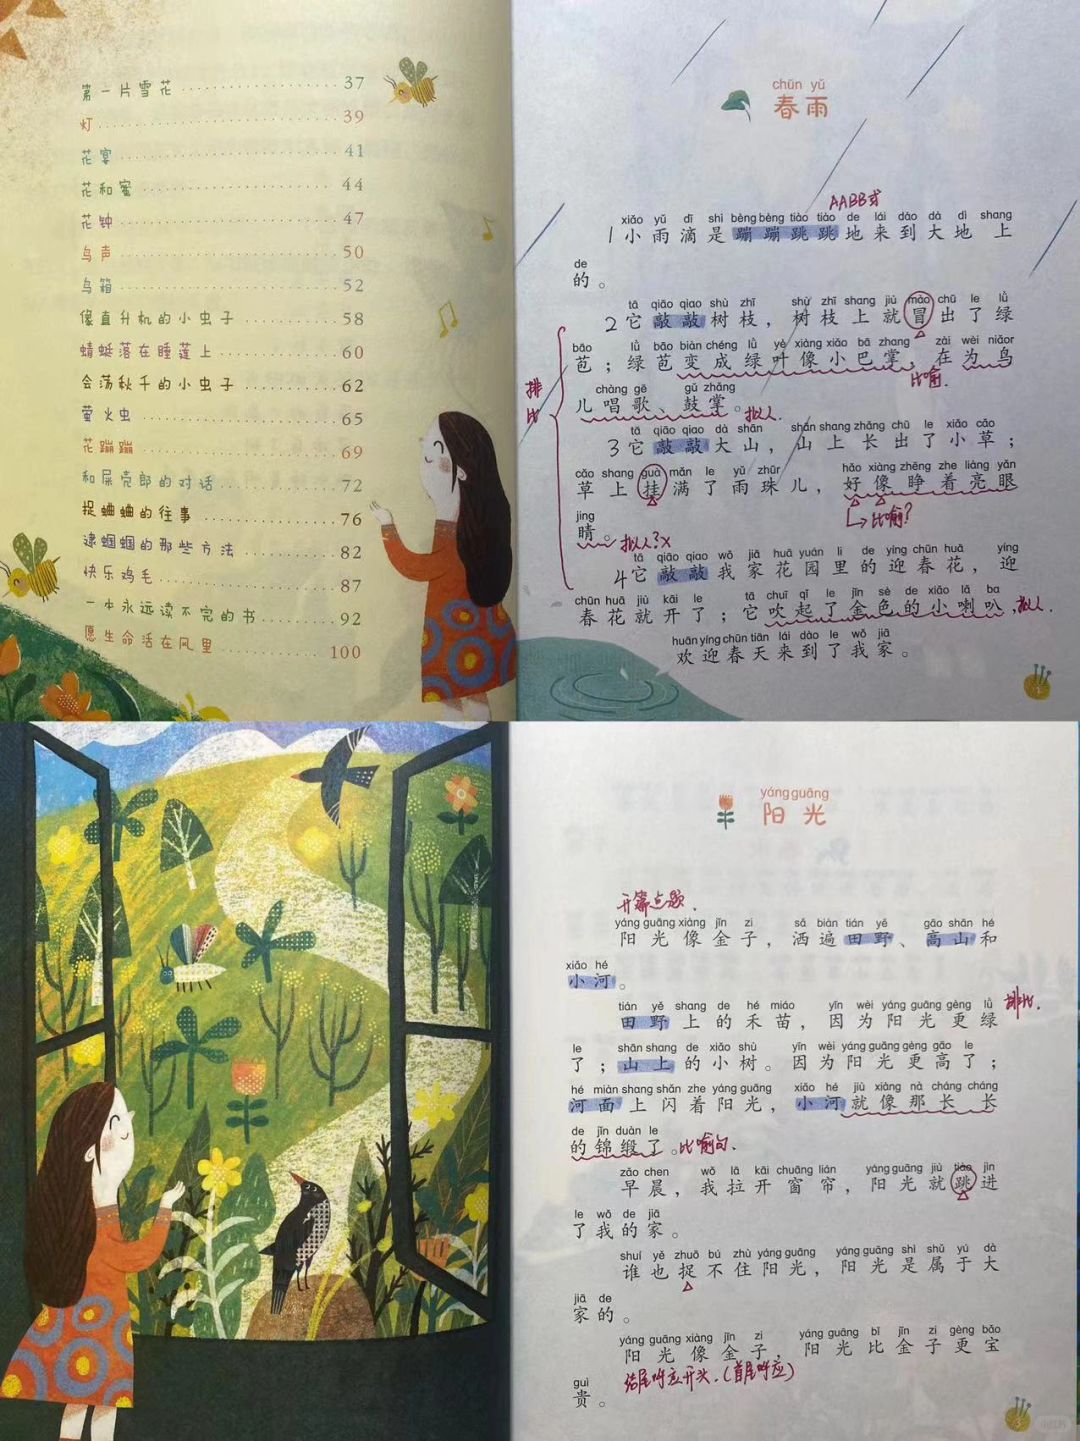 第一片雪花 37
灯 39
花宴 41
花和蜜 44
花钟 47
鸟声 50
鸟箱 52
像直升机的小虫子 58
蜻蜓落在睡莲上 60
会荡秋千的小虫子 62
萤火虫 65
花蹦蹦 69
和屎壳郎的对话 72
捉蛐蛐的往事 76
逮蝈蝈的那些方法 82
快乐鸡毛 87
一本永远读不完的书 92
愿生命活在风里 100
chūn yǔ
春雨
AABB式
xiǎo yǔ dī shì bèng bèng tiào tiào de lái dào dà dì shang
1小雨滴是蹦蹦跳跳地来到大地上
de
的。
tā qiāo qiao shù zhī shù zhī shang jiù mào chū le lǜ
2它敲敲树枝，树枝上就冒出了绿
bāo lǜ bāo biàn chéng lǜ yè xiàng xiǎo bā zhang zài wèi niǎor
苞；绿苞变成绿叶像小巴掌，在为鸟
排比
比喻.
chàng gē gǔ zhǎng
儿唱歌、鼓掌。拟人.
tā qiāo qiao dà shān shān shang zhǎng chū le xiǎo cǎo
3它敲敲大山，山上长出了小草；
cǎo shang guà mǎn le yǔ zhūr hǎo xiàng zhēng zhe liàng yǎn
草上挂满了雨珠儿，好像睁着亮眼
比喻?
jing
睛。拟人?×
tā qiāo qiao wǒ jiā huā yuán li de yíng chūn huā yíng
4它敲敲我家花园里的迎春花，迎
chūn huā jiù kāi le tā chuī qǐ le jīn sè de xiǎo lǎ ba
春花就开了；它吹起了金色的小喇叭，拟人.
huān yíng chūn tiān lái dào le wǒ jiā
欢迎春天来到了我家。
1
yáng guāng
阳光
开篇点题.
yáng guāng xiàng jīn zi sǎ biàn tián yě gāo shān hé
阳光像金子，洒遍田野、高山和
xiǎo hé
小河。
tián yě shang de hé miáo yīn wèi yáng guāng gèng lǜ
田野上的禾苗，因为阳光更绿
排比.
le shān shang de xiǎo shù yīn wèi yáng guāng gèng gāo le
了；山上的小树。因为阳光更高了；
hé miàn shang shǎn zhe yáng guāng xiǎo hé jiù xiàng nà cháng cháng
河面上闪着阳光，小河就像那长长
de jǐn duàn le
的锦缎了。比喻句.
zǎo chen wǒ lā kāi chuāng lián yáng guāng jiù tiào jìn
早晨，我拉开窗帘，阳光就跳进
le wǒ de jiā
了我的家。
shuí yě zhuō bú zhù yáng guāng yáng guāng shì shǔ yú dà
谁也捉不住阳光，阳光是属于大
jiā de
家的。
yáng guāng xiàng jīn zi yáng guāng bǐ jīn zi gèng bǎo
阳光像金子，阳光比金子更宝
guì
贵。
结尾呼应开头.(首尾呼应)
3
小红书